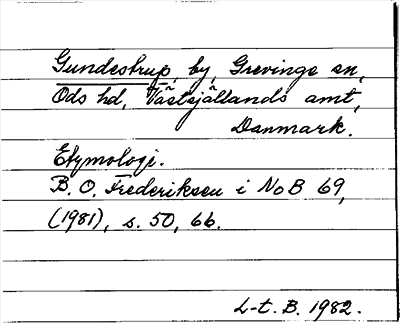 Gundestrup, by, Grevinge sn,
Ods hd, Västsjällands amt,
Danmark.
Etymologi.
B. O. Frederiksen i NoB 69,
(1981), s. 50, 66.
L-t. B. 1982.